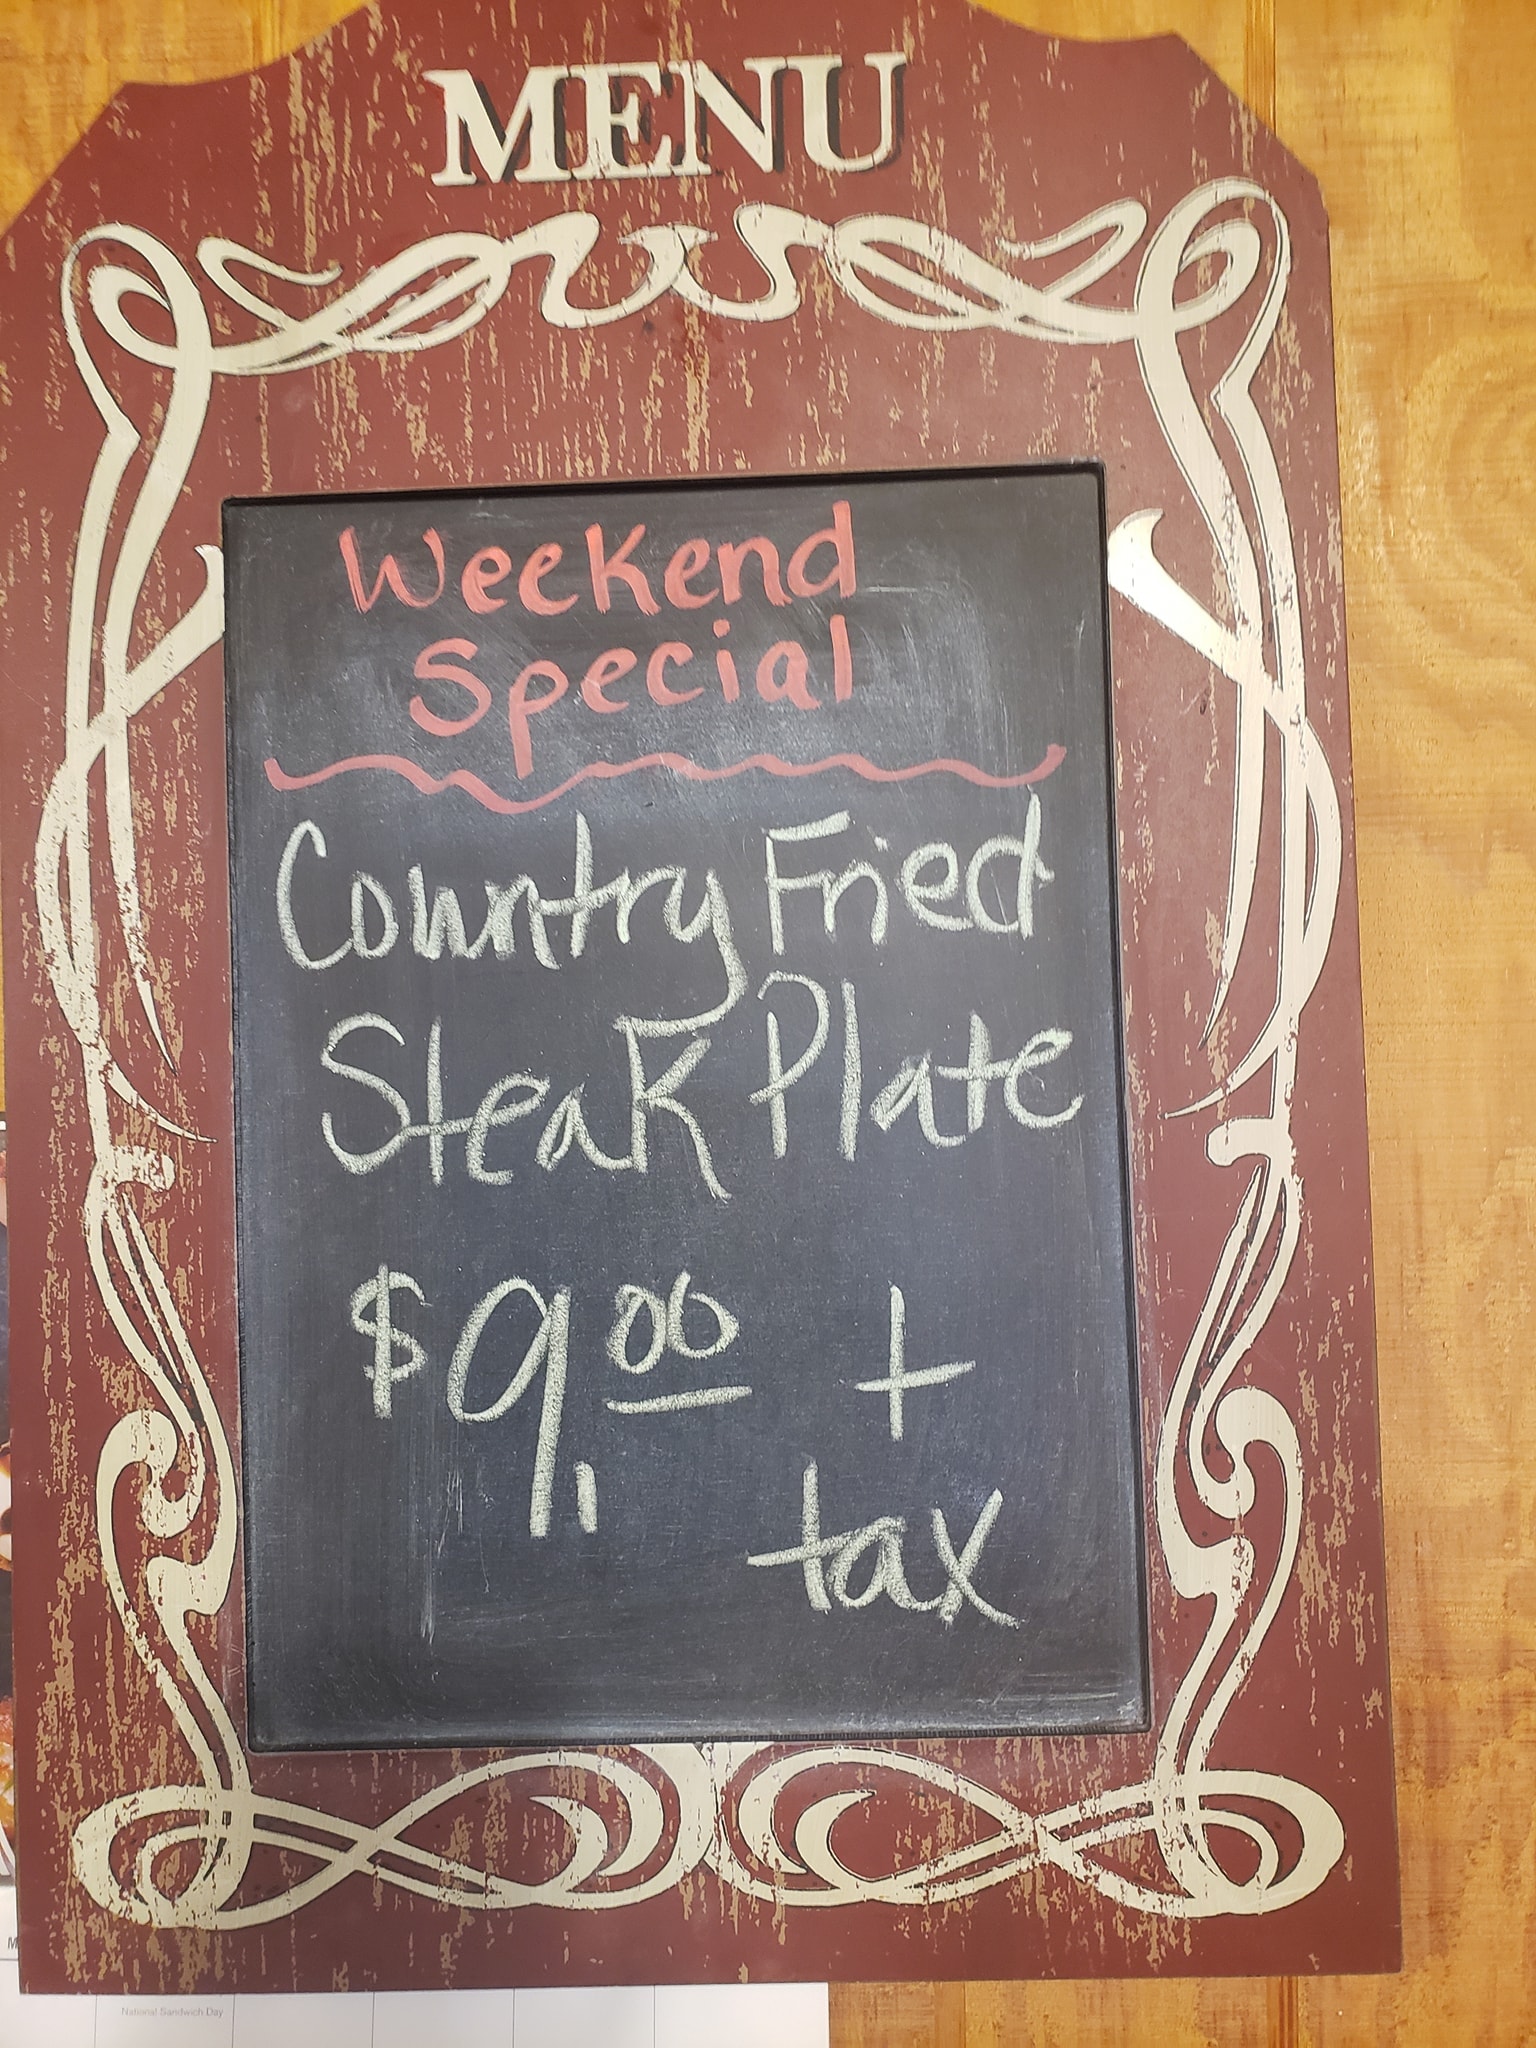 MENU
Weekend
Special
Country Fried
Steak Plate
$9.00 +
tax
National Sandwich Day